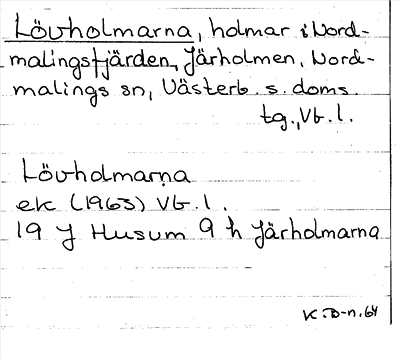 Lövholmarna, holmar i Nord-
malingsfjärden, Järholmen, Nord-
malings sn, Västerb. s. doms.
tg., Vb. l.
Lövholmarna
ek (1963) Vb. l.
19 J Husum 9 h Järholmarna
K. B-n. 64